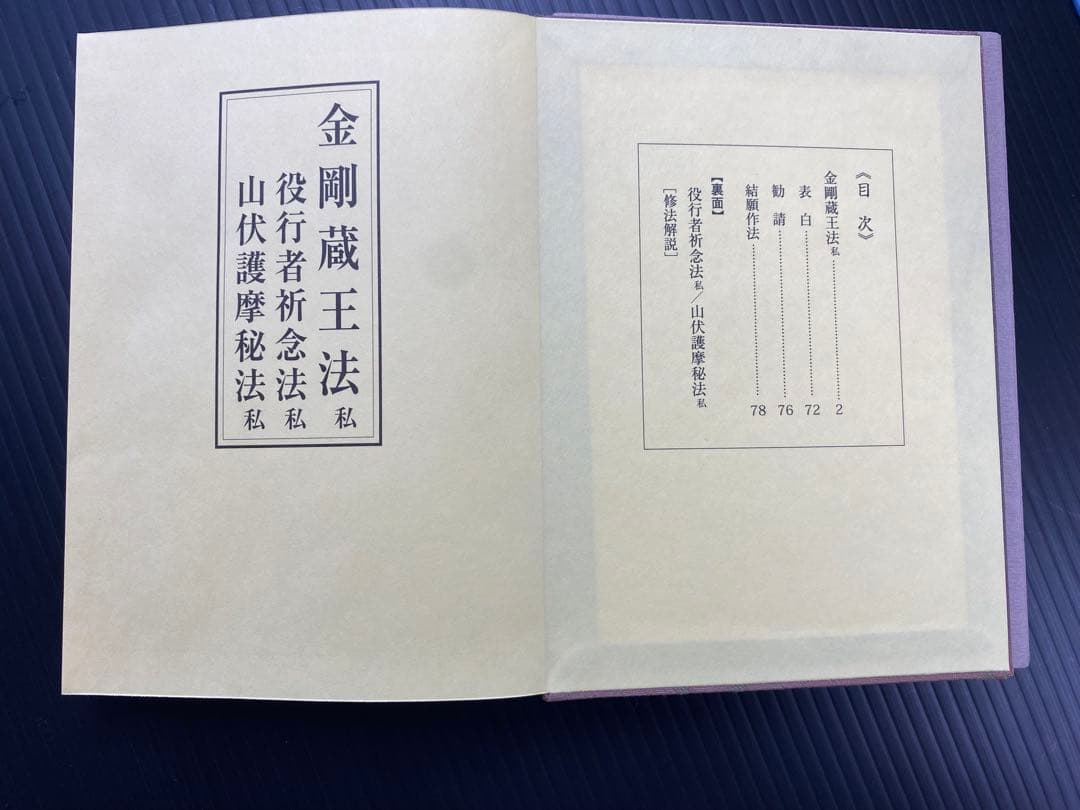 《目次》
金剛蔵王法私……………………2
表白……………………72
勧請……………………76
結願作法……………………78
【裏面】
役行者祈念法私／山伏護摩秘法私
［修法解説］
金剛蔵王法私
役行者祈念法私
山伏護摩秘法私